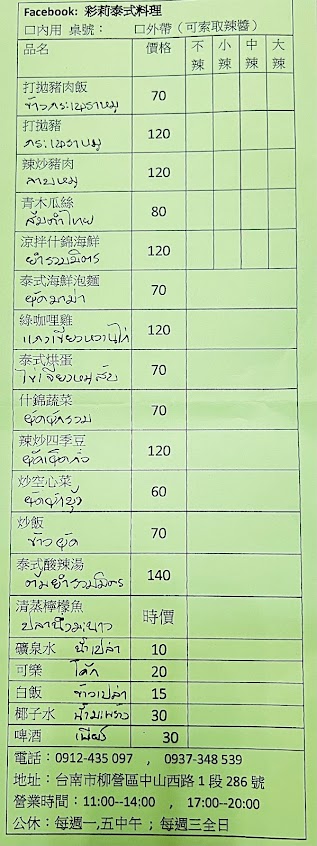 Facebook: 彩莉泰式料理
☐內用 桌號： ☐外帶（可索取辣醬）
品名 價格 不辣 小辣 中辣 大辣
打拋豬肉飯 70
ข้าวกระเพราหมู
打拋豬 120
กระเพราหมู
辣炒豬肉 120
ลาบหมู
青木瓜絲 80
ส้มตำไทย
涼拌什錦海鮮 120
ยำรวมมิตร
泰式海鮮泡麵 70
ผัดมาม่า
綠咖哩雞 120
แกงเขียวหวานไก่
泰式烘蛋 70
ไข่เจียวหมูสับ
什錦蔬菜 70
ผัดผักรวม
辣炒四季豆 120
ผัดเผ็ดถั่ว
炒空心菜 60
ผัดผักบุ้ง
炒飯 70
ข้าวผัด
泰式酸辣湯 140
ต้มยำรวมมิตร
清蒸檸檬魚 時價
ปลานึ่งมะนาว
礦泉水 น้ำเปล่า 10
可樂 โค้ก 20
白飯 ข้าวเปล่า 15
椰子水 น้ำมะพร้าว 30
啤酒 เบียร์ 30
電話：0912-435 097 , 0937-348 539
地址：台南市柳營區中山西路 1 段 286 號
營業時間：11:00--14:00 , 17:00--20:00
公休：每週一,五中午；每週三全日